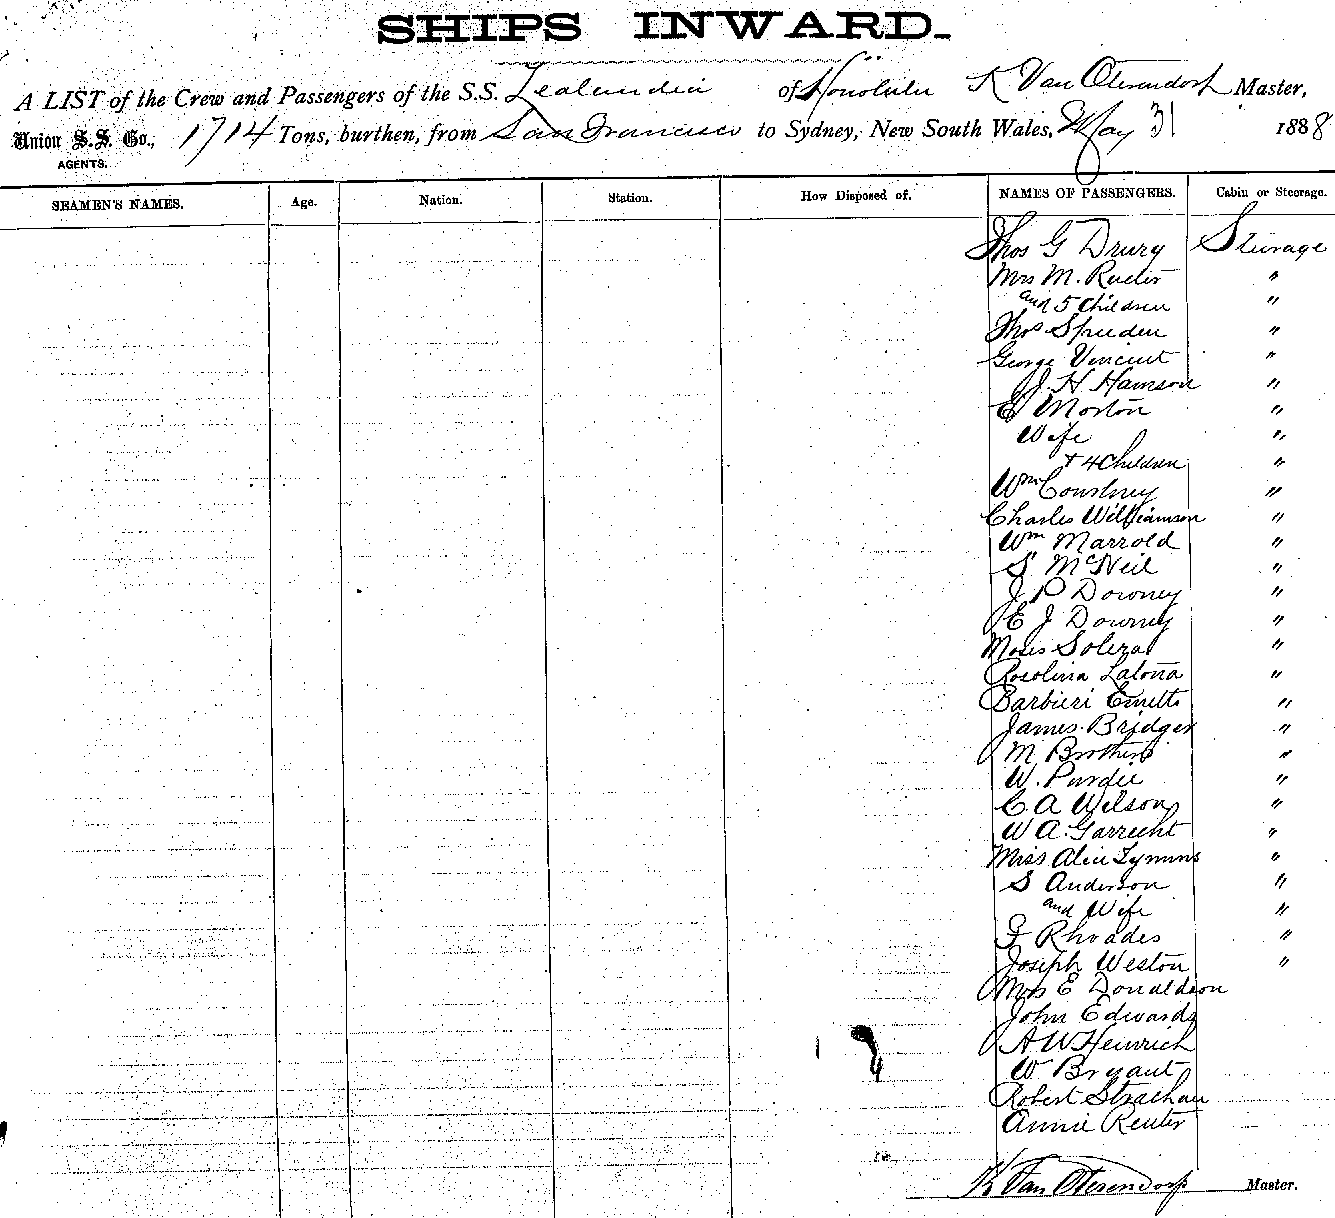 SHIPS INWARD.
A LIST of the Crew and Passengers of the S.S. Zealandia of Honolulu K Van Oterendorp Master,
Union S.S. Co., 1714 Tons, burthen, from San Francisco to Sydney, New South Wales, May 31 1888
AGENTS.
SEAMEN'S NAMES. Age. Nation. Station. How Disposed of. NAMES OF PASSENGERS. Cabin or Steerage.
Thos G Drury Steerage
Mrs M. Reuter "
and 5 Children "
Thos Speeden "
George Vincent "
J. H Hamson "
E Morton "
Wife "
+ 4 Children "
Wm Courtney "
Charles Williamson "
Wm Marrold "
S McNeil "
J P Downey "
E J Downey "
Moses Soleza "
Rosolina Latona "
Barbieri Emetto "
James Bridger "
M Brothers "
W. Purdie "
C A Wilson "
W A. Garrecht "
Miss Alice Lymms "
S Anderson "
and Wife "
F Rhoades "
Joseph Weston "
Mrs E Donaldson
John Edwards
A W Heinrich
W Bryant
Robert Strathan
Annie Reuter
K Van Oterendorp Master.